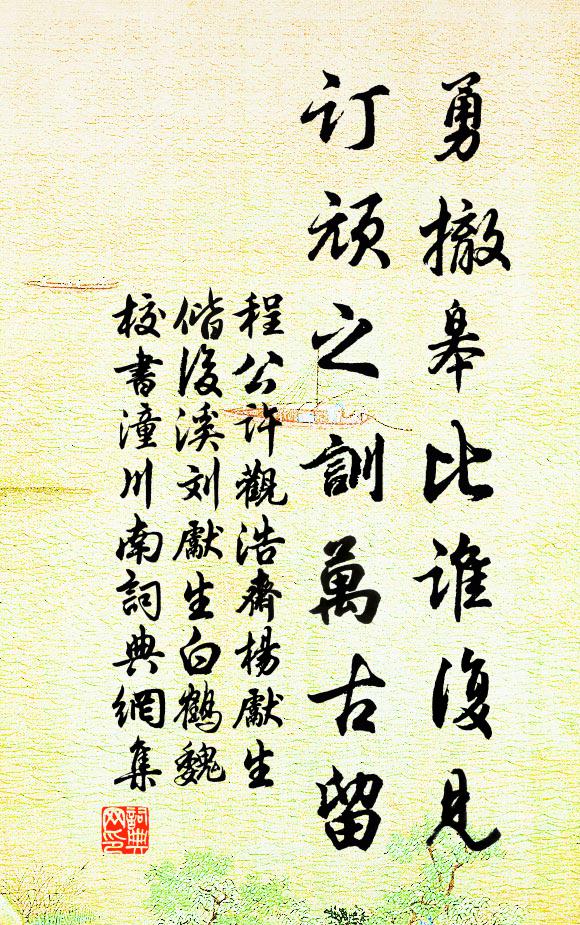 勇撤皋比谁復见
订顽之訓萬古留
程公许觀浩齋楊獻生
偕後溪刘獻生白鹤魏
校書潼川南詞典網集
詞典
网印